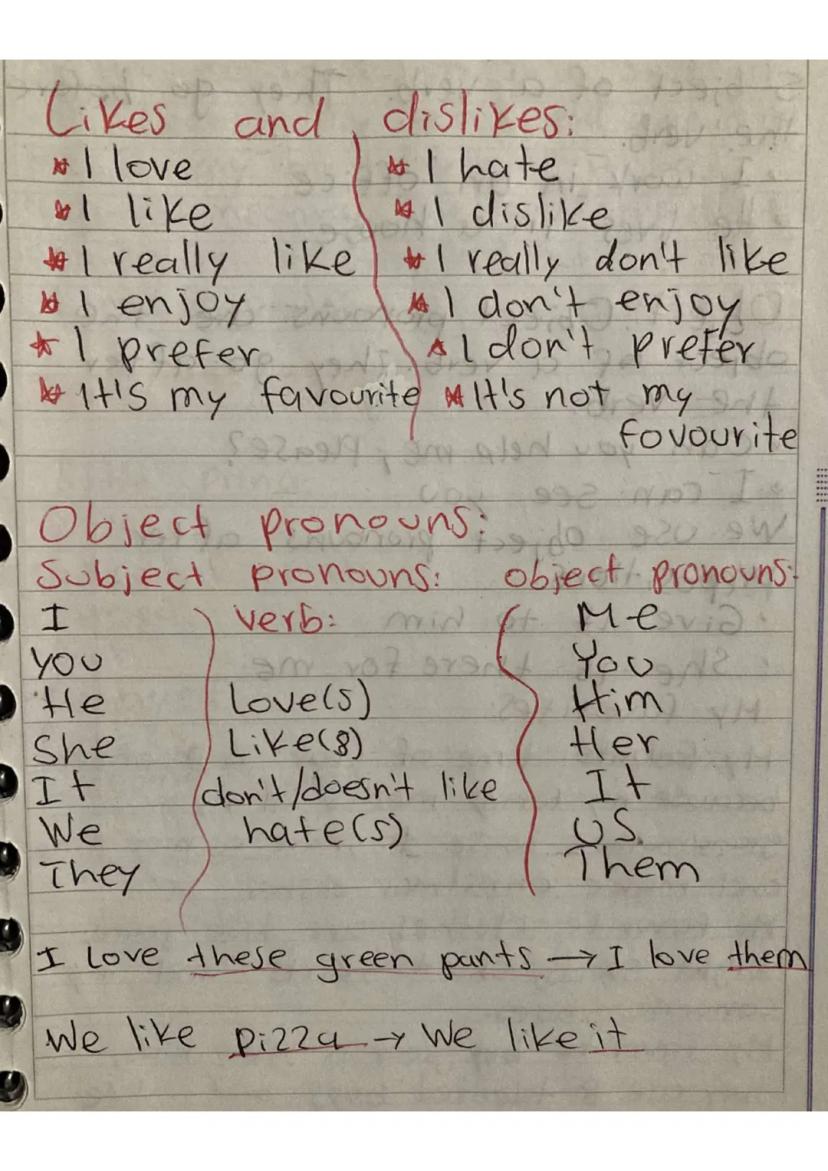 Likes and dislikes:
* I love * I hate
* I like * I dislike
* I really like * I really don't like
* I enjoy * I don't enjoy
* I prefer * I don't prefer
* It's my favourite * It's not my
fovourite
Object pronouns:
Subject pronouns: object pronouns:
I verb: Me
You You
He Love(s) Him
She Like(s) Her
It don't/doesn't like It
We hate(s) US.
They Them
I Love these green pants → I love them
We like pizza → We like it